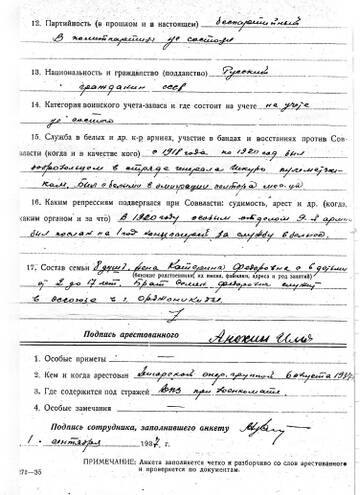 12. Партийность (в прошлом и в настоящем) беспартийный
В политпартии не состоял
13. Национальность и гражданство (подданство) Русский
гражданин СССР
14. Категория воинского учета-запаса и где состоит на учете на учете
не состою
15. Служба в белых и др. к-р армиях, участие в бандах и восстаниях против Сов-
власти (когда и в качестве кого) с 1918 года по 1920 год был
добровольцем в отряде генерала Шкуро пулеметчи-
ком, был с белыми в эмиграции
16. Каким репрессиям подвергался при Соввласти: судимость, арест и др. (когда,
каким органом и за что) В 1920 году особым отделом 9-й армии
был сослан на 1 год концлагерей за службу в белой.
17. Состав семьи 8 душ, жена Катерина Федоровна с 6 детьми
(близкие родственники, их имена, фамилии, адреса и род занятий)
от 2 до 17 лет. Брат Семен Федорович служит
в г. Орджоникидзе.
Подпись арестованного Анохин Илья
1. Особые приметы —
2. Кем и когда арестован опер. группой 6 августа 1937
3. Где содержится под стражей КПЗ при
4. Особые замечания —
Подпись сотрудника, заполнившего анкету
„1" сентября 1937 г.
ПРИМЕЧАНИЕ: Анкета заполняется четко и разборчиво со слов арестованного
и проверяется по документам.
271—35